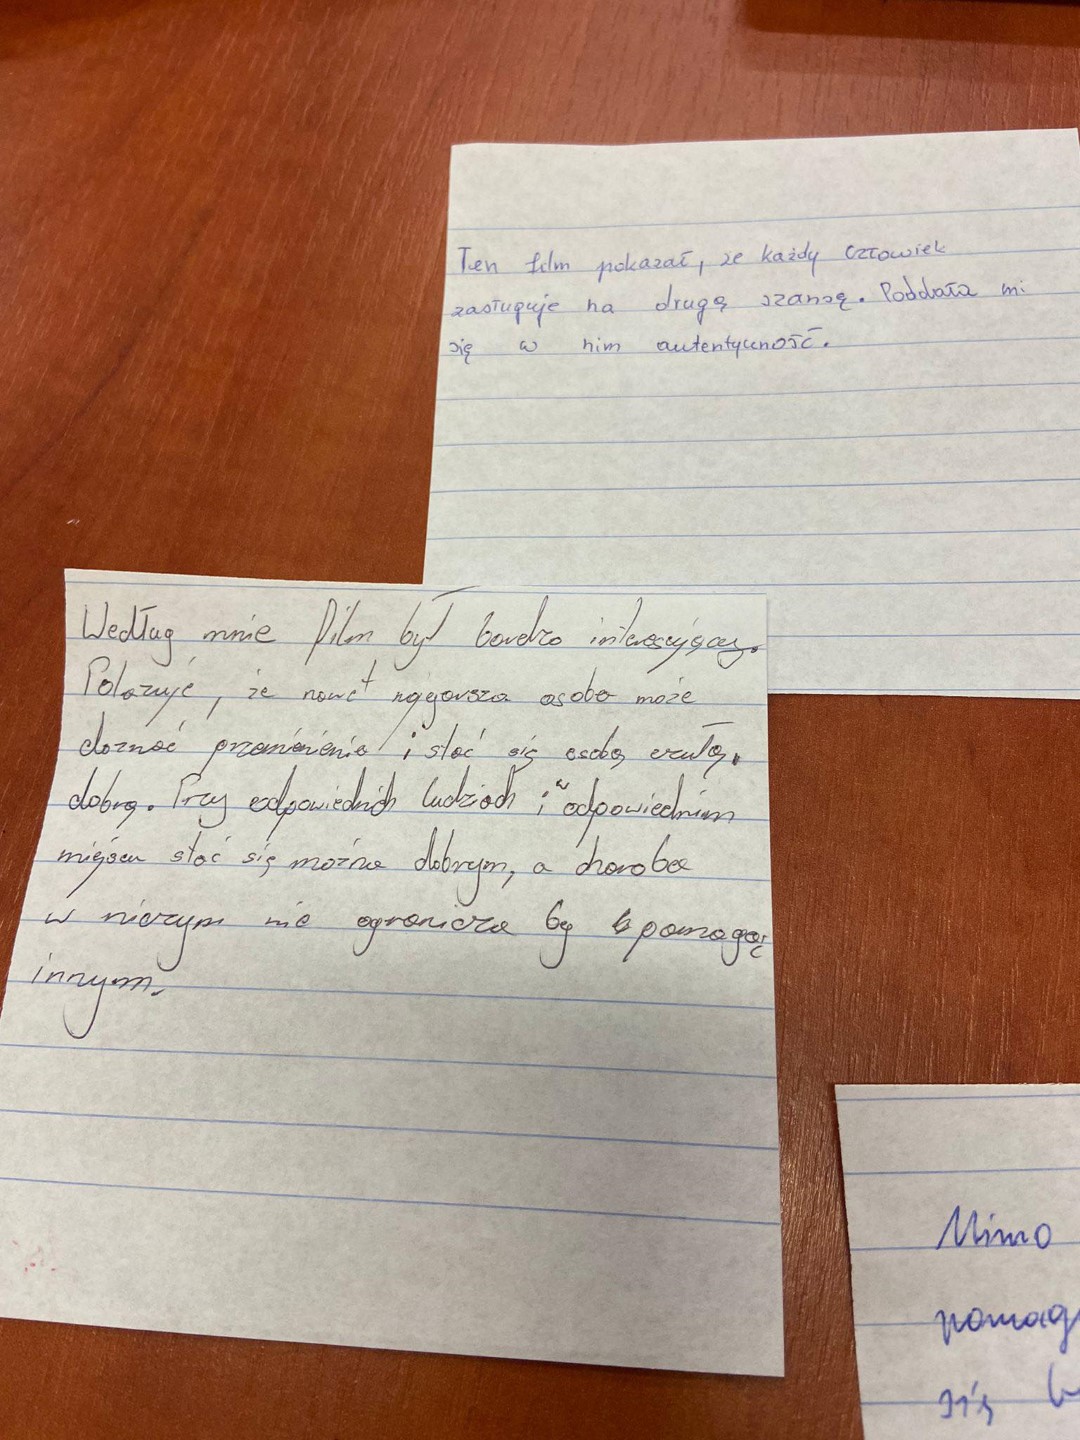 Ten film pokazał, że każdy człowiek
zasługuje na drugą szansę. Poddała mi
się w nim autentyczność.
Według mnie film był bardzo interesujący.
Pokazuje, że nawet najgorsza osoba może
doznać przemienienia i stać się osobą czułą,
dobrą. Przy odpowiednich ludziach i w odpowiednim
miejscu stać się można dobrym, a choroba
w niczym nie ogranicza by pomagać
innym.
Mimo
pomag
się